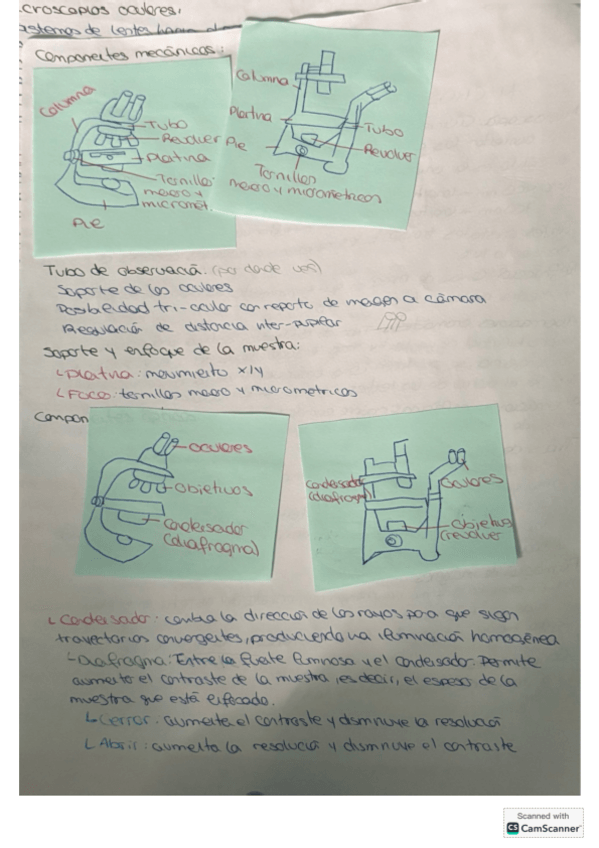 croscopios oculares.
sistemas de lentes
Componentes mecánicos:
Columna
Tubo
Revolver
Platina
Tornillos
macro y
micromét.
Pie
Columna
Platina
Pie
Tubo
Revolver
Tornillos
macro y micrometricos
Tubo de observació. (por donde ves)
Soporte de los oculares
Posibilidad tri-ocular con reporte de imagen a cámara
Regulación de distancia inter-pupilar
Soporte y enfoque de la muestra:
Platina: movimiento x/y
Foco: tornillos macro y micrometricos
Compon
oculares
Objetivos
Condensador
(diafragma)
Condensador
(diafragma)
Oculares
Objetivos
(revolver
Condensador: cambia la dirección de los rayos para que sigan
trayectorias convergentes, produciendo una iluminación homogénea
Diafragma: Entre la fuente luminosa y el condensador. Permite
aumentar el contraste de la muestra, es decir, el espesor de la
muestra que está enfocado.
Cerrar: aumenta el contraste y disminuye la resolució
Abrir: aumenta la resolució y disminuye el contraste
Scanned with
CS CamScanner